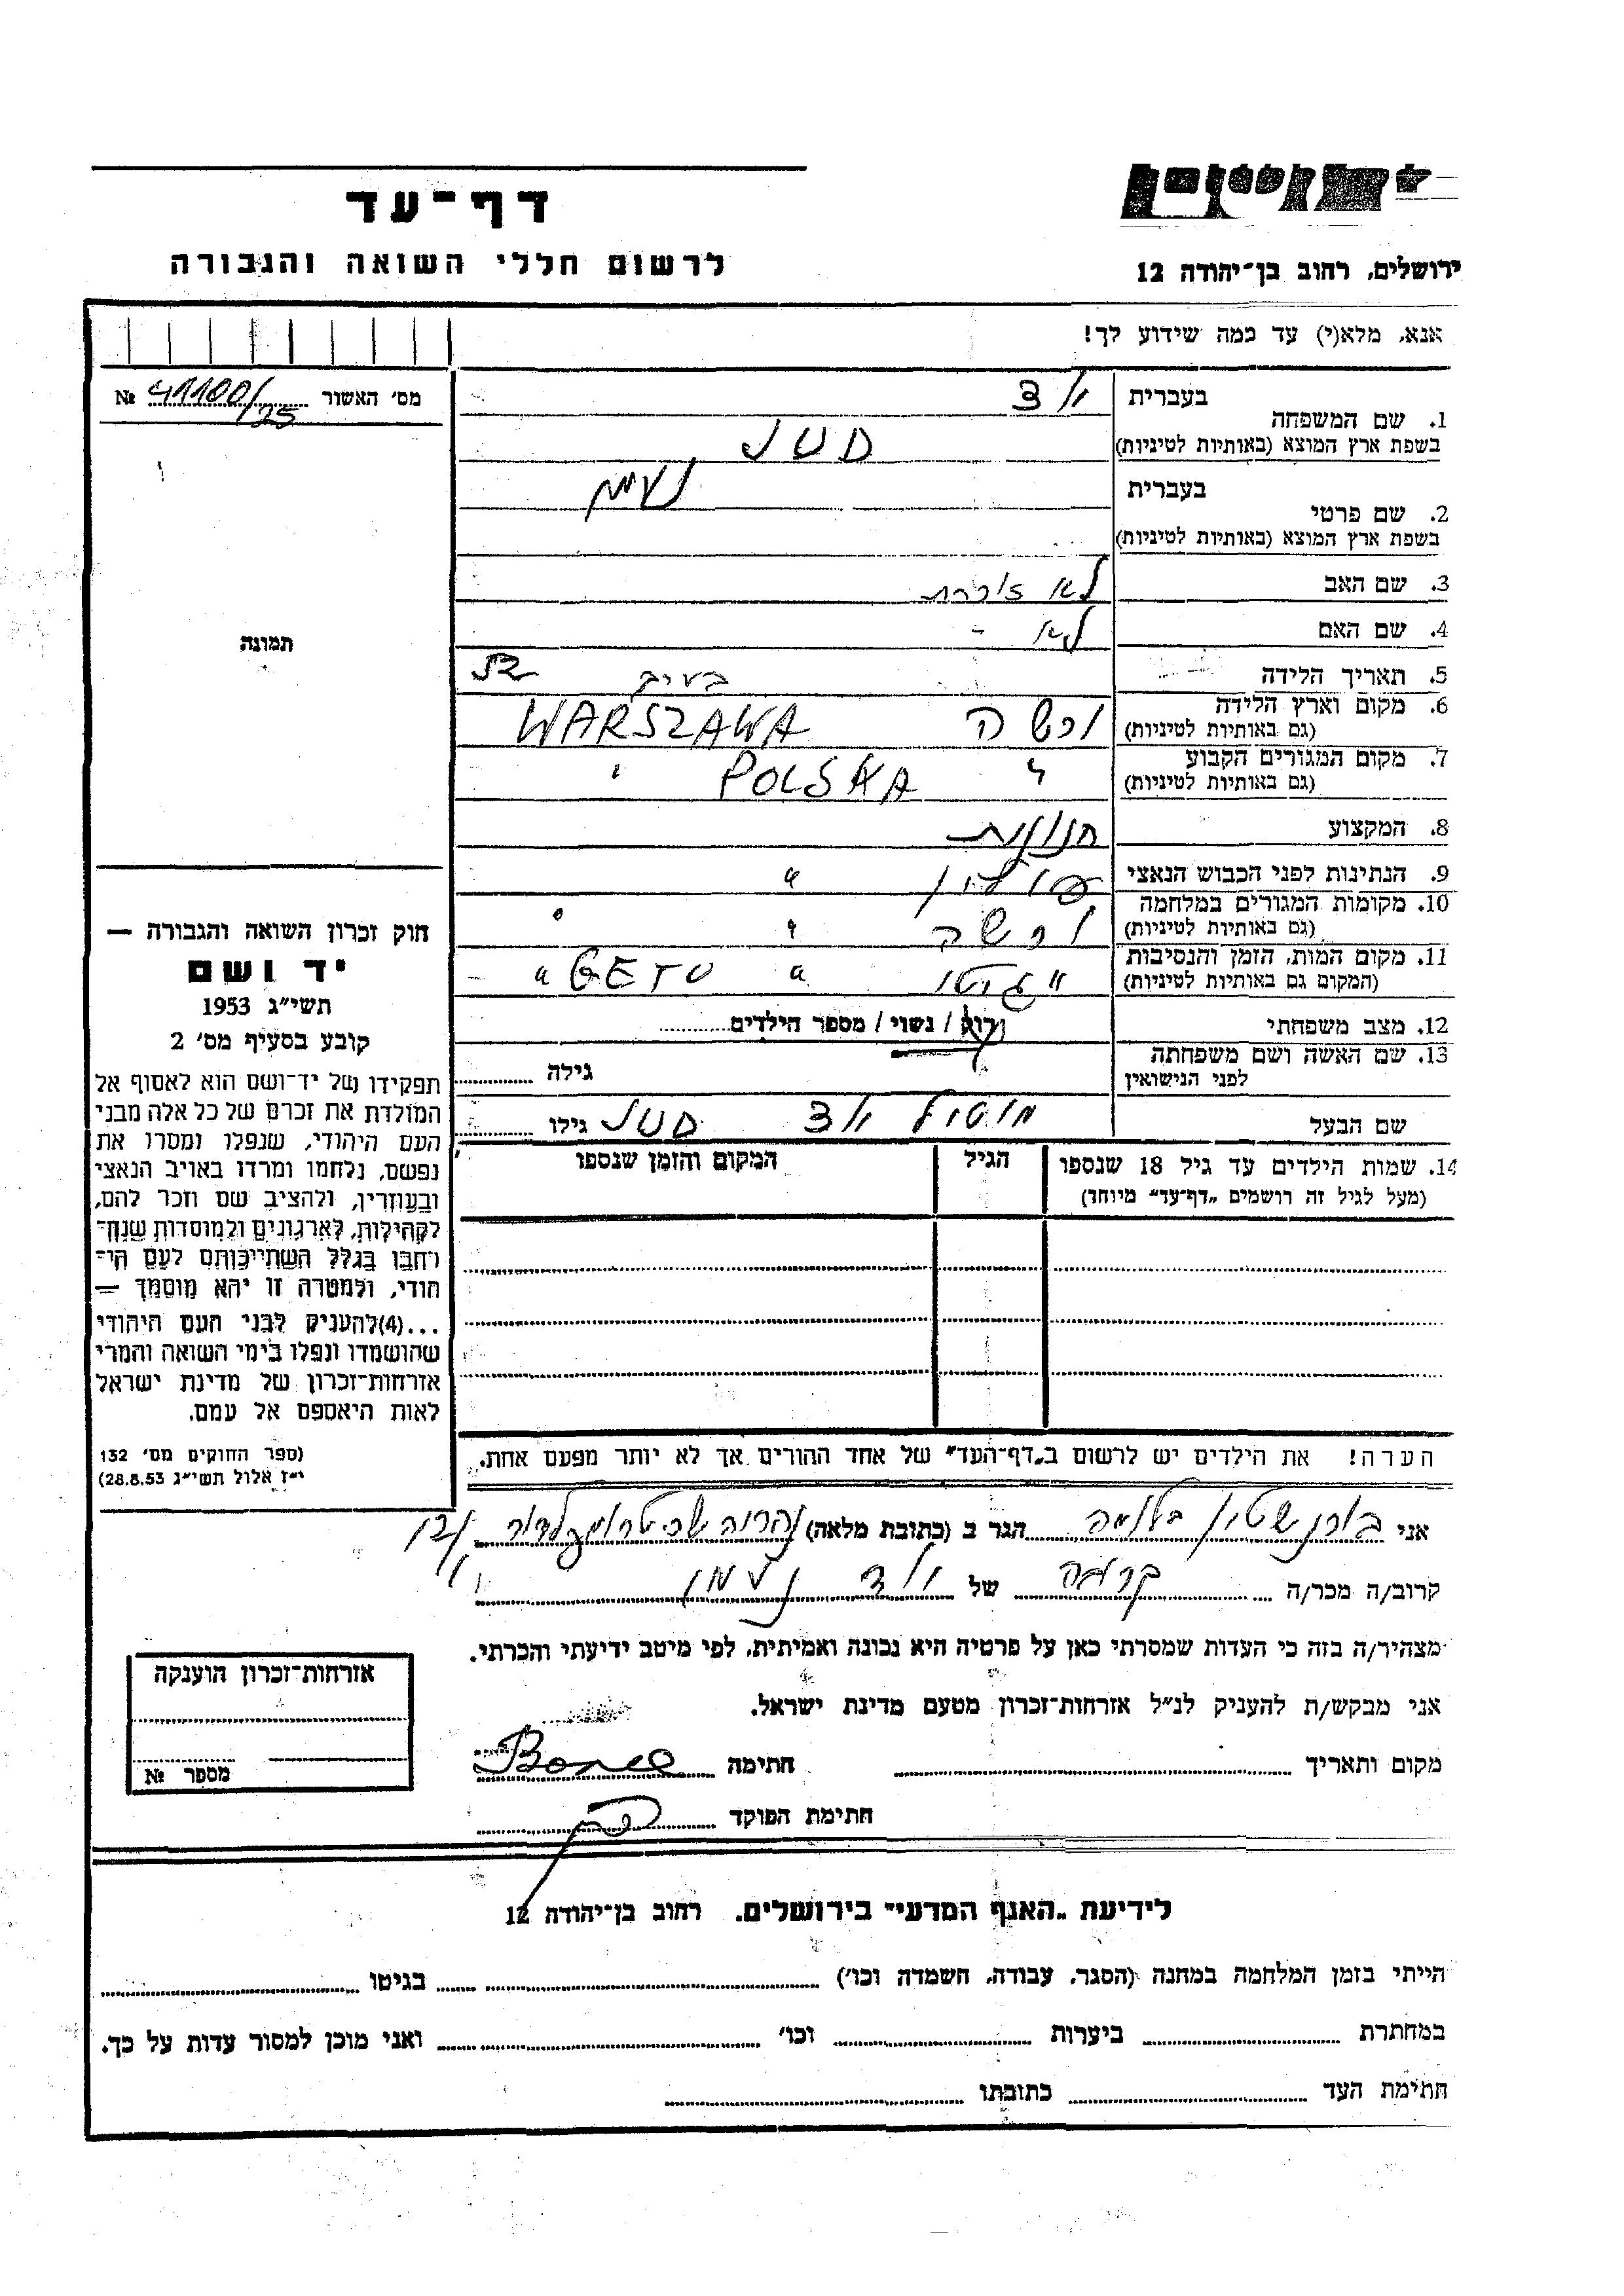 דף־עד
לרשום חללי השואה והגבורה
ירושלים, רחוב בן־יהודה 12
אנא, מלא(י) עד כמה שידוע לך!
מס׳ האשור № 41100/75
תמונה
חוק זכרון השואה והגבורה —
יד ושם
תשי״ג 1953
קובע בסעיף מס׳ 2
תפקידו של יד־ושם הוא לאסוף אל
המולדת את זכרם של כל אלה מבני
העם היהודי, שנפלו ומסרו את
נפשם, נלחמו ומרדו באויב הנאצי
ובעוזריו, ולהציב שם וזכר להם,
לקהילות, לארגונים ולמוסדות שנח־
רבו בגלל השתייכותם לעם הי־
הודי, ולמטרה זו יהא מוסמך —
...(4)להעניק לבני העם היהודי
שהושמדו ונפלו בימי השואה והמרי
אזרחות־זכרון של מדינת ישראל
לאות היאספם אל עמם.
(ספר החוקים מס׳ 132
י״ז אלול תשי״ג 28.8.53)
1. שם המשפחה
בעברית
בשפת ארץ המוצא (באותיות לטיניות)
2. שם פרטי
בעברית
בשפת ארץ המוצא (באותיות לטיניות)
3. שם האב לא זוכרת
4. שם האם לא -
5. תאריך הלידה
6. מקום וארץ הלידה ורשה WARSZAWA
(גם באותיות לטיניות)
7. מקום המגורים הקבוע " POLSKA "
(גם באותיות לטיניות)
8. המקצוע
9. הנתינות לפני הכבוש הנאצי פולין "
10. מקומות המגורים במלחמה ורשה " "
(גם באותיות לטיניות)
11. מקום המות, הזמן והנסיבות "גיטו " GETO " -
(המקום גם באותיות לטיניות)
12. מצב משפחתי רווק / נשוי / מספר הילדים
13. שם האשה ושם משפחתה גילה
לפני הנישואין
שם הבעל גילו
14. שמות הילדים עד גיל 18 שנספו הגיל המקום והזמן שנספו
(מעל לגיל זה רושמים „דף־עד״ מיוחד)
הערה! את הילדים יש לרשום ב„דף־העד״ של אחד ההורים אך לא יותר מפעם אחת.
אני בורנשטין הגר ב (כתובת מלאה)
קרוב/ה מכר/ה קרובה של ולד נעמן
מצהיר/ה בזה כי העדות שמסרתי כאן על פרטיה היא נכונה ואמיתית, לפי מיטב ידיעתי והכרתי.
אני מבקש/ת להעניק לנ״ל אזרחות־זכרון מטעם מדינת ישראל.
מקום ותאריך חתימה
חתימת הפוקד
אזרחות־זכרון הוענקה
מספר №
לידיעת „האגף המדעי״ בירושלים. רחוב בן־יהודה 12
הייתי בזמן המלחמה במחנה (הסגר, עבודה, השמדה וכו׳) בגיטו
במחתרת ביערות וכו׳ ואני מוכן למסור עדות על כך.
חתימת העד כתובתו